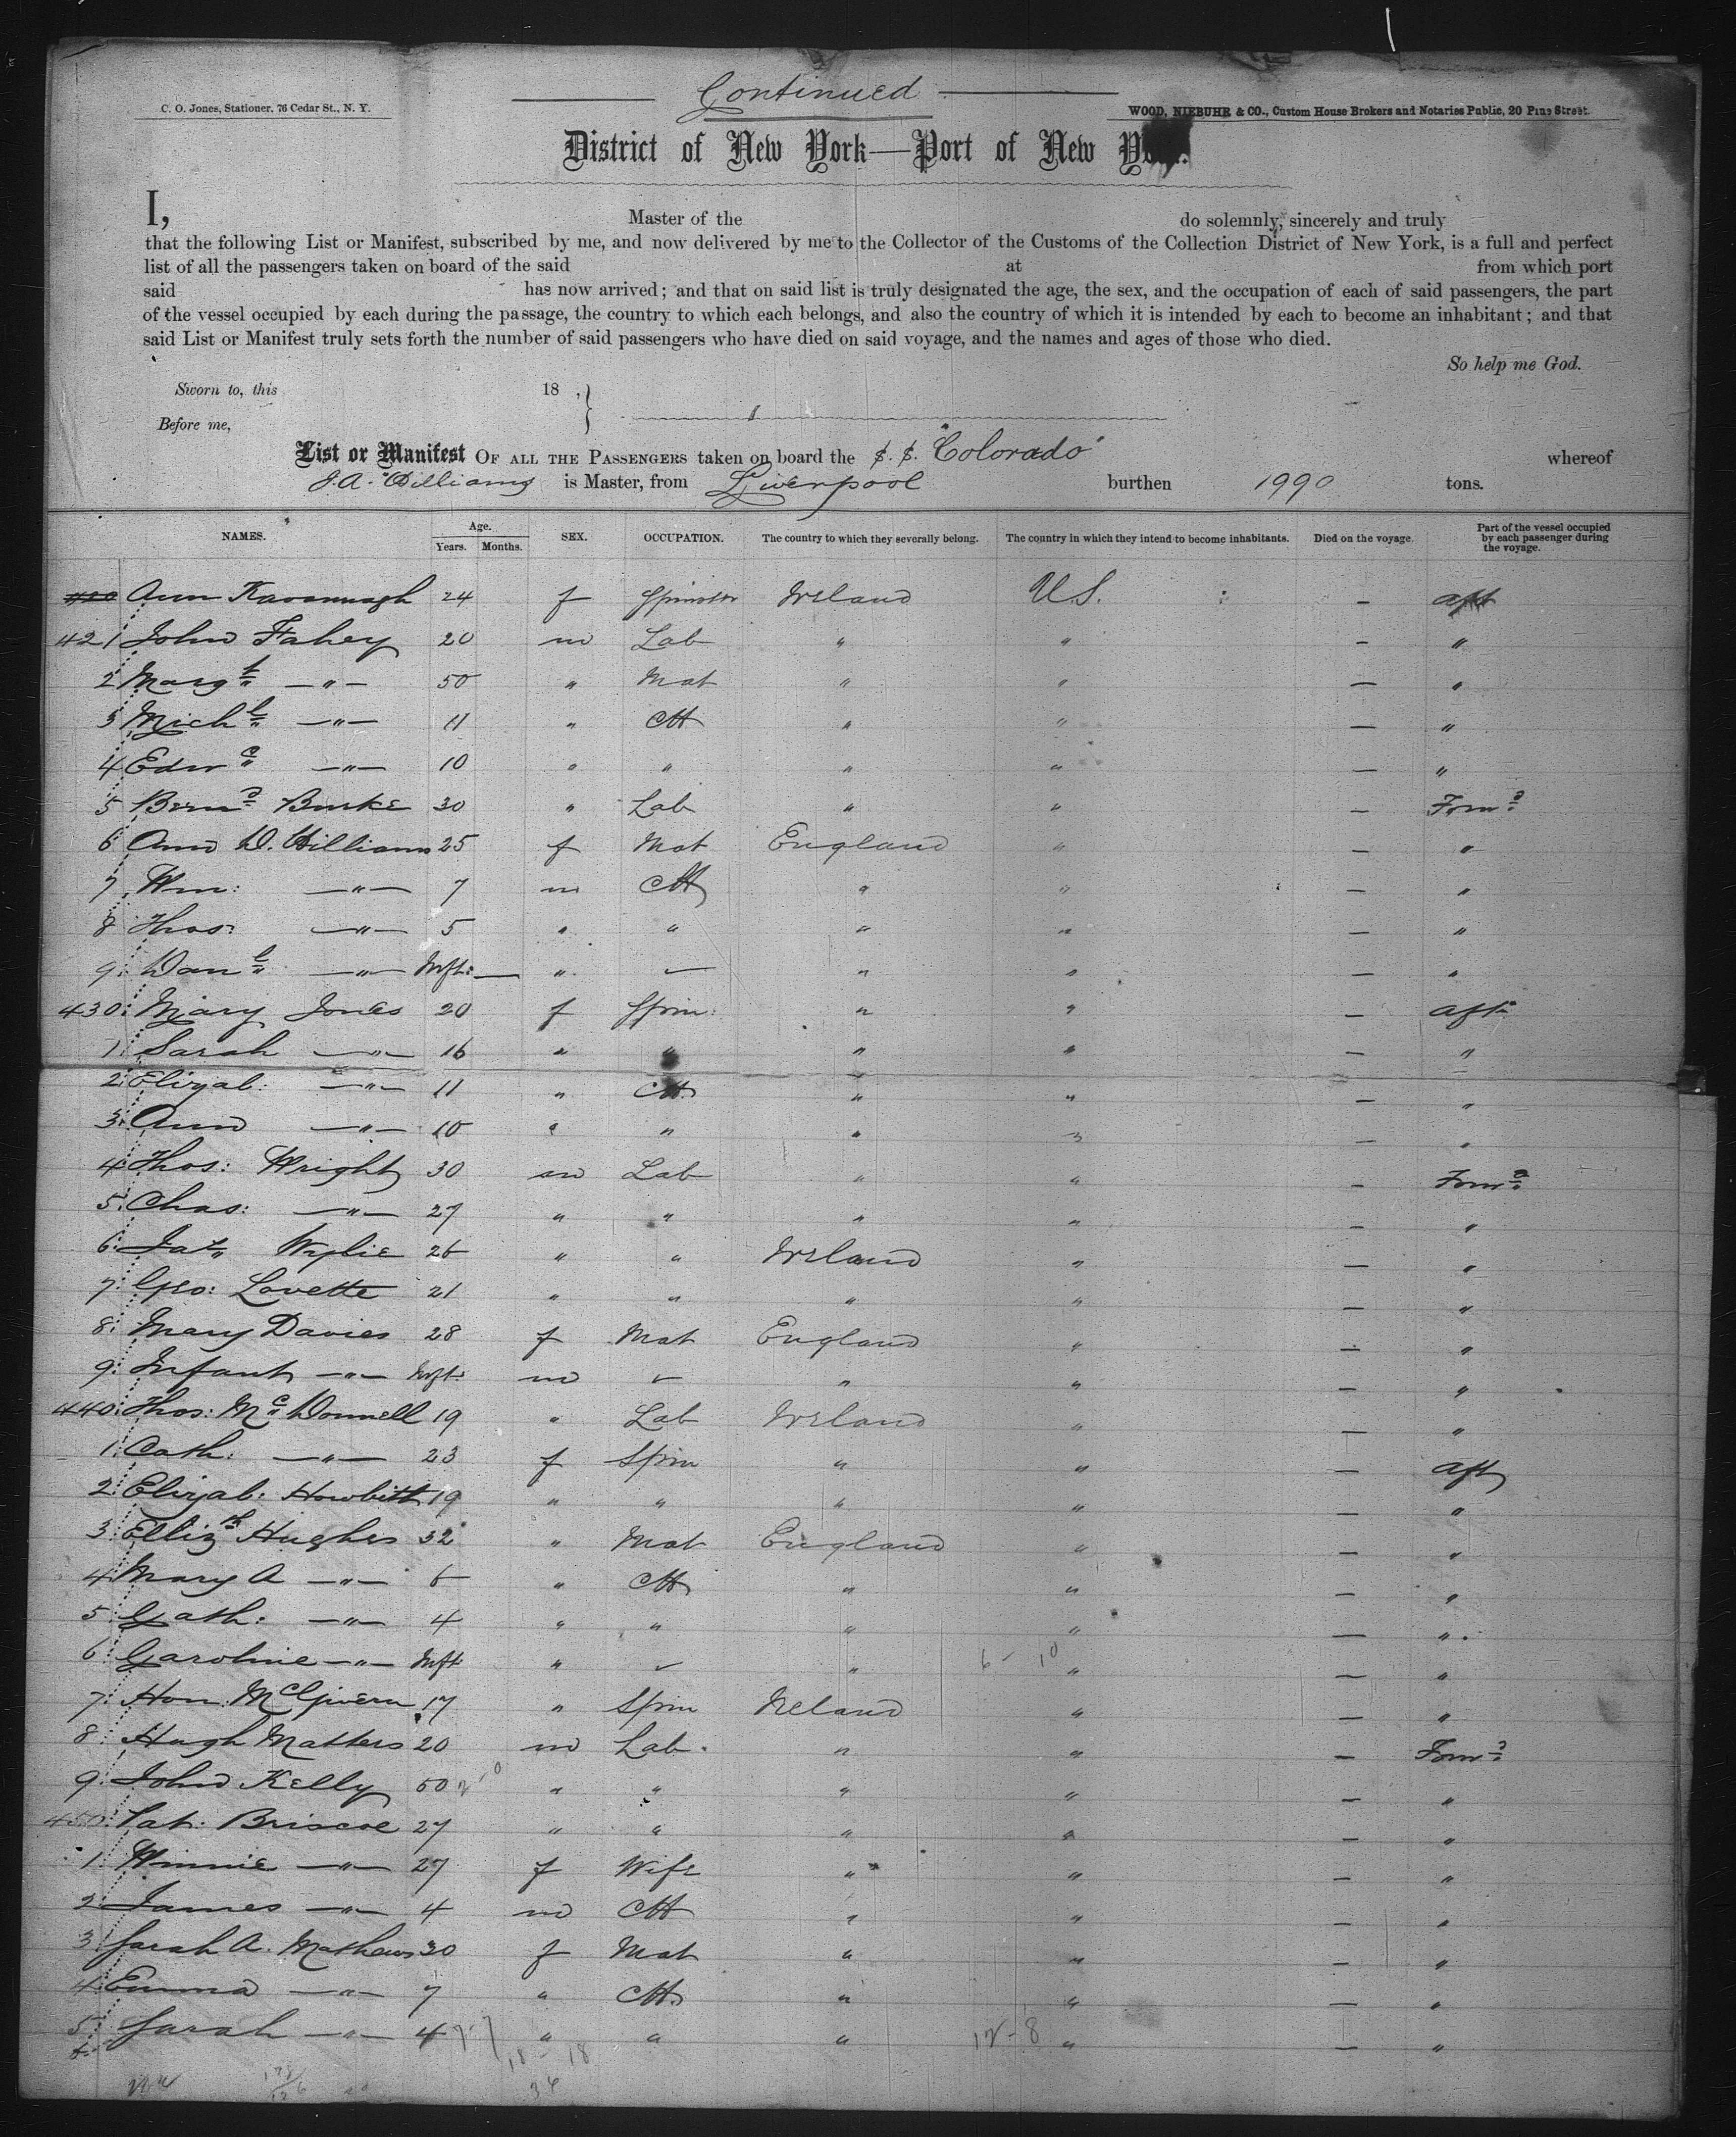 Continued
C. O. Jones, Stationer, 76 Cedar St., N. Y.
WOOD, NIEBUHR & CO., Custom House Brokers and Notaries Public, 20 Pine Street.
District of New York—Port of New York.
I, Master of the do solemnly, sincerely and truly
that the following List or Manifest, subscribed by me, and now delivered by me to the Collector of the Customs of the Collection District of New York, is a full and perfect
list of all the passengers taken on board of the said at from which port
said has now arrived; and that on said list is truly designated the age, the sex, and the occupation of each of said passengers, the part
of the vessel occupied by each during the passage, the country to which each belongs, and also the country of which it is intended by each to become an inhabitant; and that
said List or Manifest truly sets forth the number of said passengers who have died on said voyage, and the names and ages of those who died.
So help me God.
Sworn to, this 18 ,
Before me,
List or Manifest OF ALL THE PASSENGERS taken on board the S. S. "Colorado" whereof
J. A. Williams is Master, from Liverpool burthen 1990 tons.
NAMES. Age. Years. Months. SEX. OCCUPATION. The country to which they severally belong. The country in which they intend to become inhabitants. Died on the voyage. Part of the vessel occupied by each passenger during the voyage.
420 Ann Kavannagh 24 f Spinster Ireland U.S. — aft
421 John Fahey 20 m Lab " " — "
2 Margt —"— 50 " Mat " " — "
3 Michl —"— 11 " Ch " " — "
4 Edwd —"— 10 " " " " — "
5 Bernd Burke 30 " Lab " " — Forwd
6 Ann D. Williams 25 f Mat England " — "
7 Wm: —"— 7 m Ch " " — "
8 Thos: —"— 5 " " " " — "
9 Danl —"— Inft: — " " " — "
430 Mary Jones 20 f Spin: " " — aft
1 Sarah —"— 16 " " " " — "
2 Elizab: —"— 11 " Ch " " — "
3 Ann —"— 10 " " " " — "
4 Thos: Wright 30 m Lab " " — Forwd
5 Chas: —"— 27 " " " " — "
6 Wylie 26 " " Ireland " — "
7 Geo: Lovette 21 " " " " — "
8 Mary Davies 28 f Mat England " — "
9 Infant —"— Inft: m " " — "
440 Thos: McDonnell 19 " Lab Ireland " — "
1 Cath: —"— 23 f Spin " " — aft
2 Elizab: Howbitt 19 " " " " — "
3 Elizth Hughes 32 " Mat England " — "
4 Mary A —"— 6 " Ch " " — "
5 Cath: —"— 4 " " " " — "
6 Caroline —"— Inft " " " — "
6 - 10
7 Hon: McGivern 17 " Spin Ireland " — "
8 Hugh Matters 20 m Lab. " " — Forwd
9 John Kelly 50 " " " " — "
450 Pat: Briscoe 27 " " " " — "
1 Winnie —"— 27 f Wife " " — "
2 James —"— 4 m Ch " " — "
3 Sarah A. Mathews 30 f Mat " " — "
4 Emma —"— 7 " Ch " " — "
5 Sarah —"— 4 " " " " — "
12 - 8
18 - 18